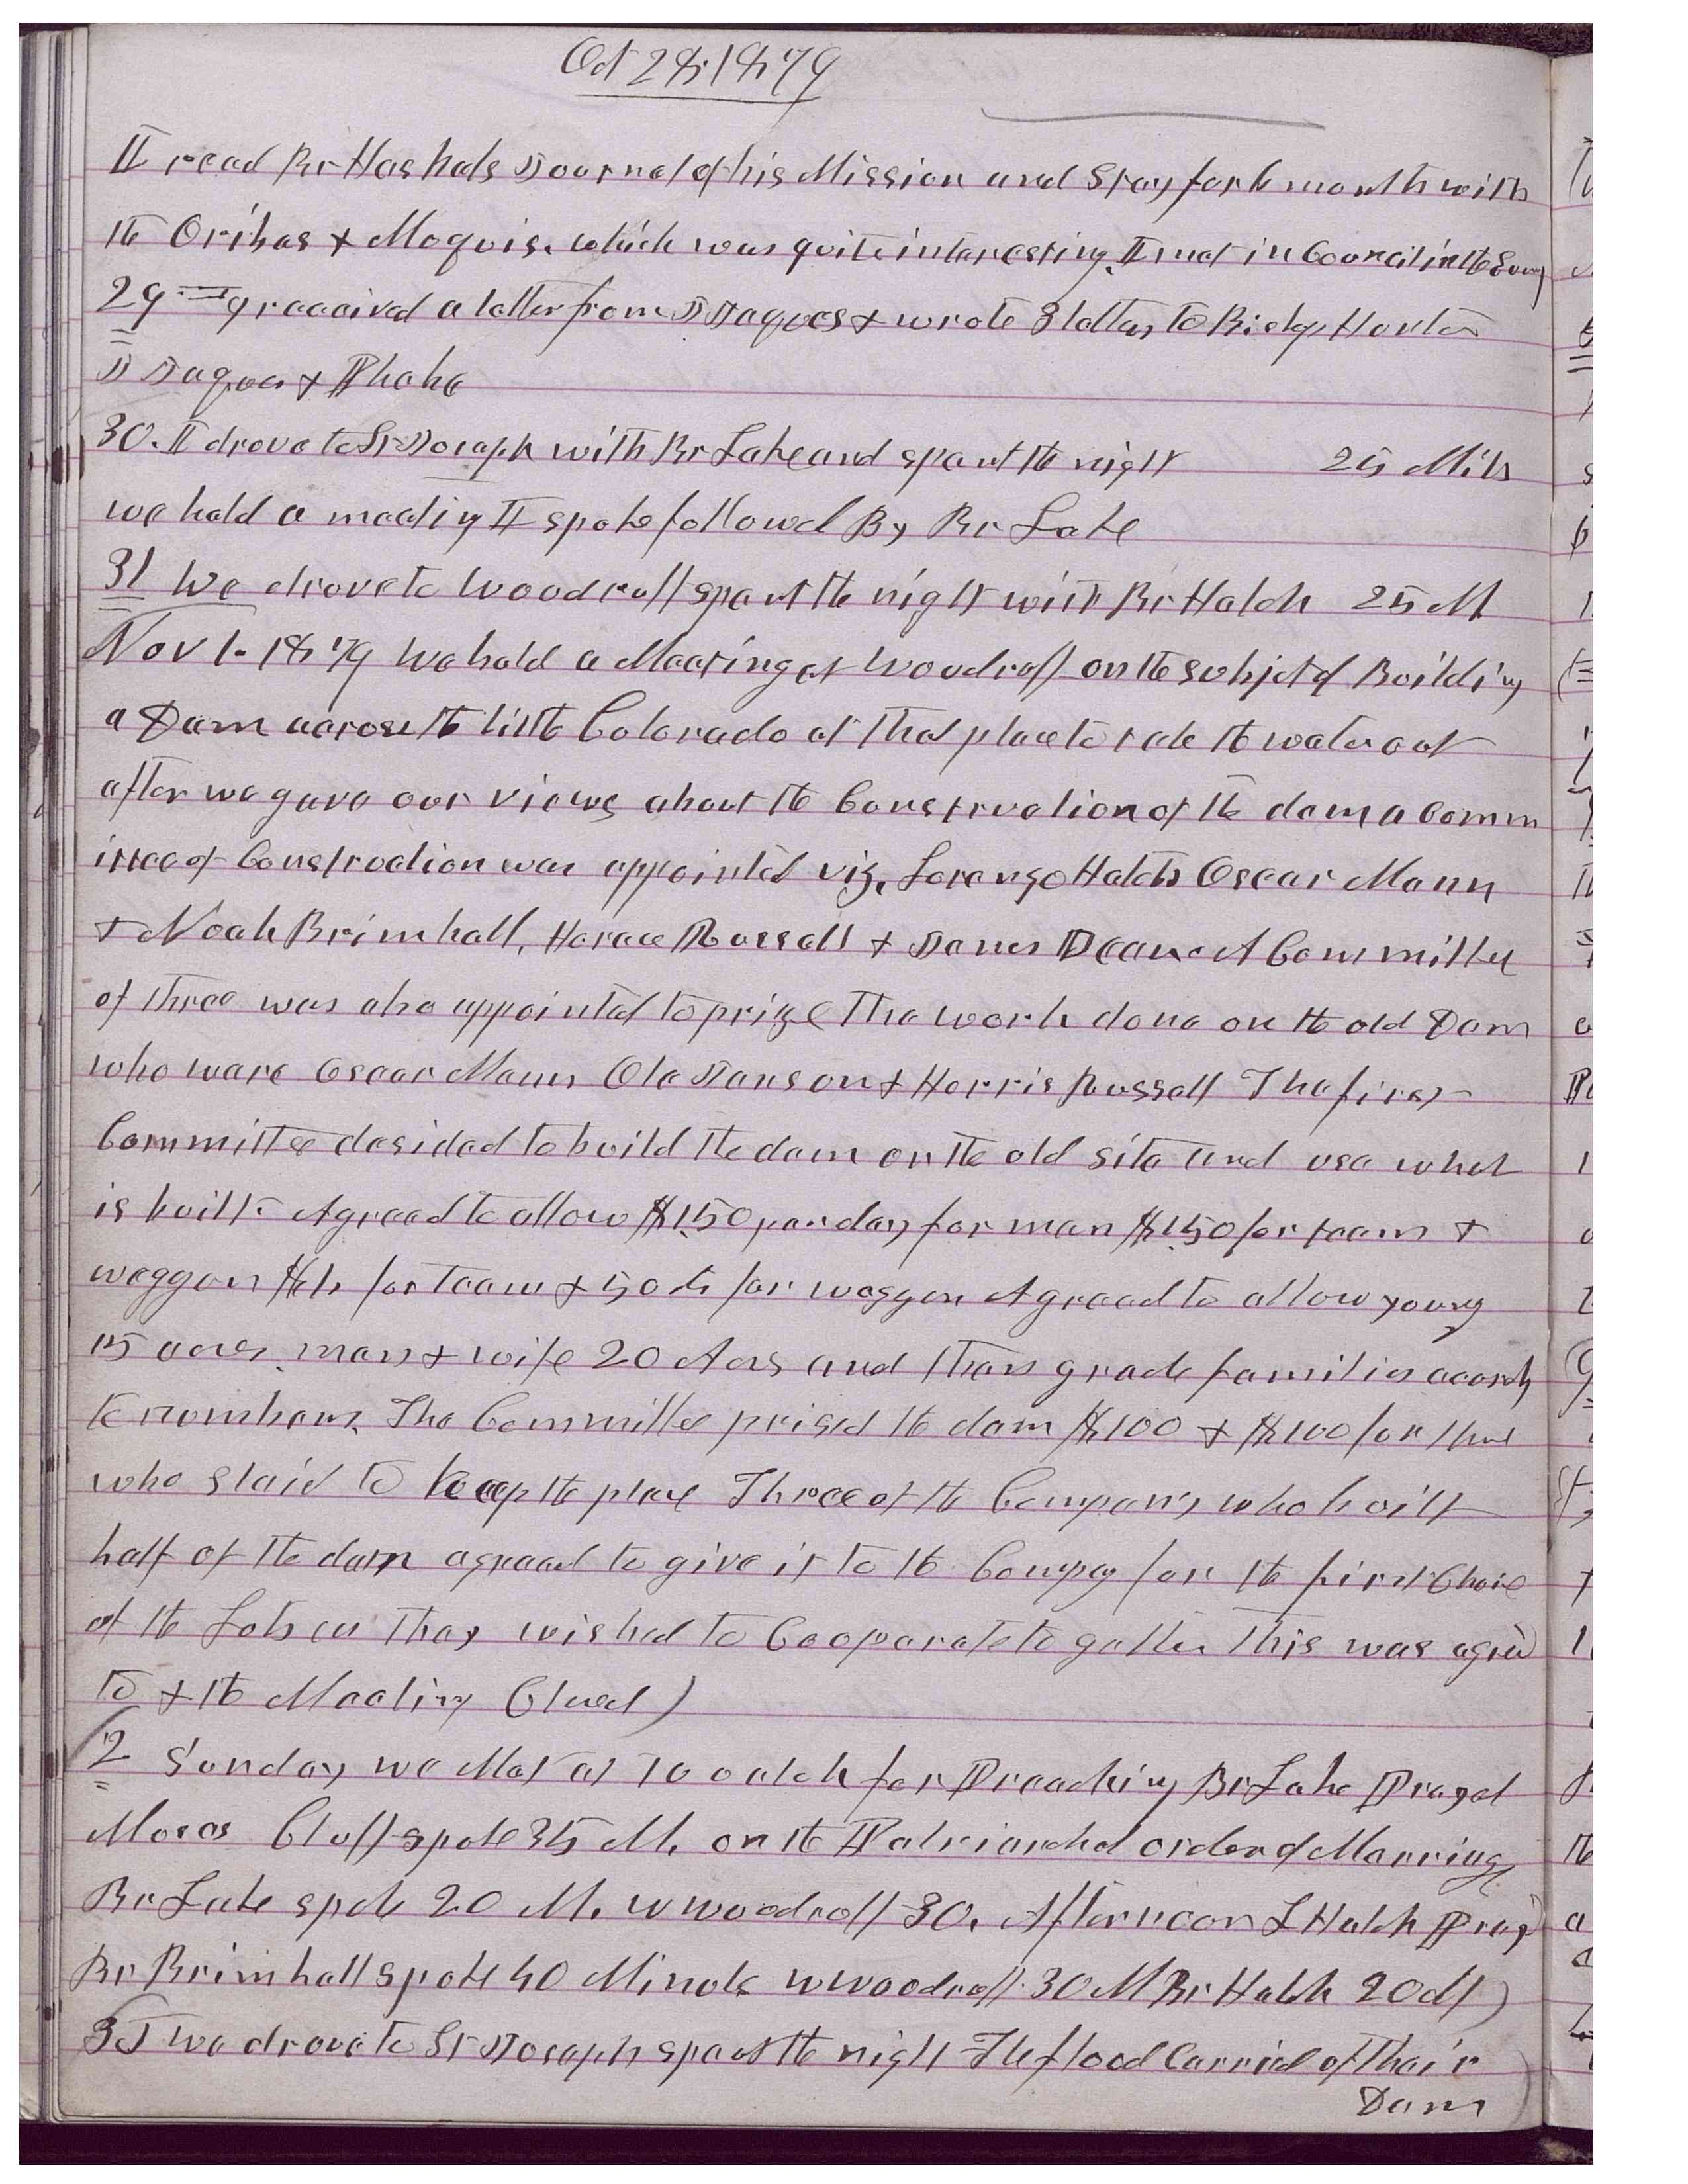 Oct 28, 1879
I read Br Haskels Journal of his Mission and Stay for 6 month with
the Oribas & Moquis. which was quite interesting. I met in Council in the Eveng
29 I received a letter from J Jaques & wrote 3 letters to Bishop Hunter
J Jaques & Phebe
30. I drove to St Joseph with Br Lake and spent the night 25 Mils
we held a meeting I spoke followed By Br Lake
31 We drove to Woodruff spent the night with Br Hatch 25 M
Nov 1. 1879 We held a Meeting at Woodruff on the subjet of Building
a Dam across the little Colorado at that place to take the water out
after we gave our views about the Construction of the dam a Comm
ittee of Construction was appointed viz, Lorenzo Hatch Oscar Mann
& Noah Brimhall, Horace Russell & James Deane A Committee
of three was also appointed to prize the work done on the old Dam
who ware Oscar Mann Ole Janson & Horris Russell The first
Committee desided to build the dam on the old site and use what
is built. Agreed to allow $1.50 per day for man $1.50 for team &
waggon $1, for team & 50 cts for waggon Agreed to allow young
15 acres, man & wife 20 Acrs and then grade families accordg
to numbers. The Committee prised the dam $100 & $100 for those
who staid to keep the place Three of the Company who built
half of the dam agreed to give it to the Compay for the first Choice
of the Lots as they wished to Cooperate together This was agreed
to & the Meeting Closed)
2 Sunday we Met at 10 oclok for Preaching Br Lake Prayed
Moses Cluff spoke 35 M. on the Patriarchal order of Marriage
Br Lake spoke 20 M. W Woodruff 30. Afternoon L Hatch Prayd
Br Brimhall spoke 40 Minuts W Woodruff 30 M Br Hatch 20 M)
3d we drove to St Joseph spent the night The flood Carried of their
Dam